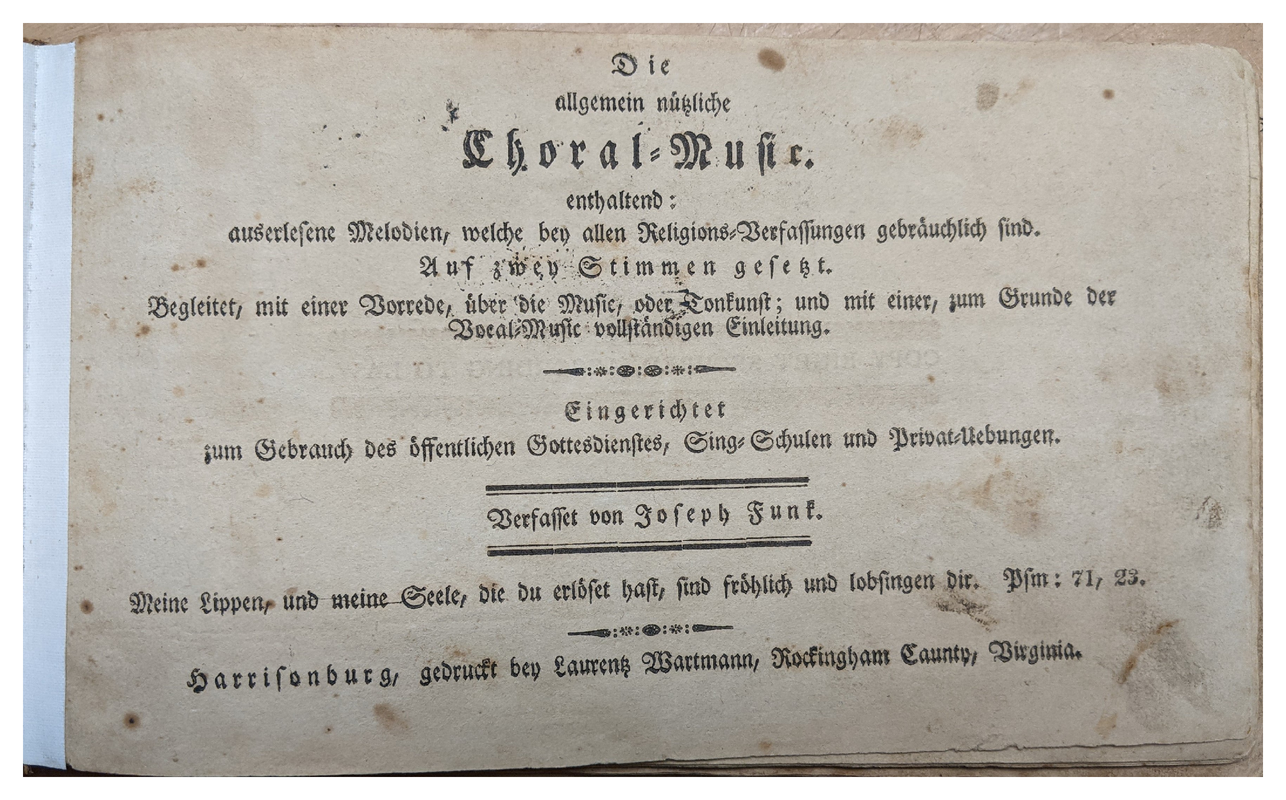 Die
allgemein nützliche
Choral-Music.
enthaltend:
auserlesene Melodien, welche bey allen Religions-Verfassungen gebräuchlich sind.
Auf zwey Stimmen gesetzt.
Begleitet, mit einer Vorrede, über die Music, oder Tonkunst; und mit einer, zum Grunde der
Vocal-Music vollständigen Einleitung.
Eingerichtet
zum Gebrauch des öffentlichen Gottesdienstes, Sing-Schulen und Privat-Uebungen.
Verfasset von Joseph Funk.
Meine Lippen, und meine Seele, die du erlöset hast, sind fröhlich und lobsingen dir. Psm: 71, 23.
Harrisonburg, gedruckt bey Laurentz Wartmann, Rockingham Caunty, Virginia.